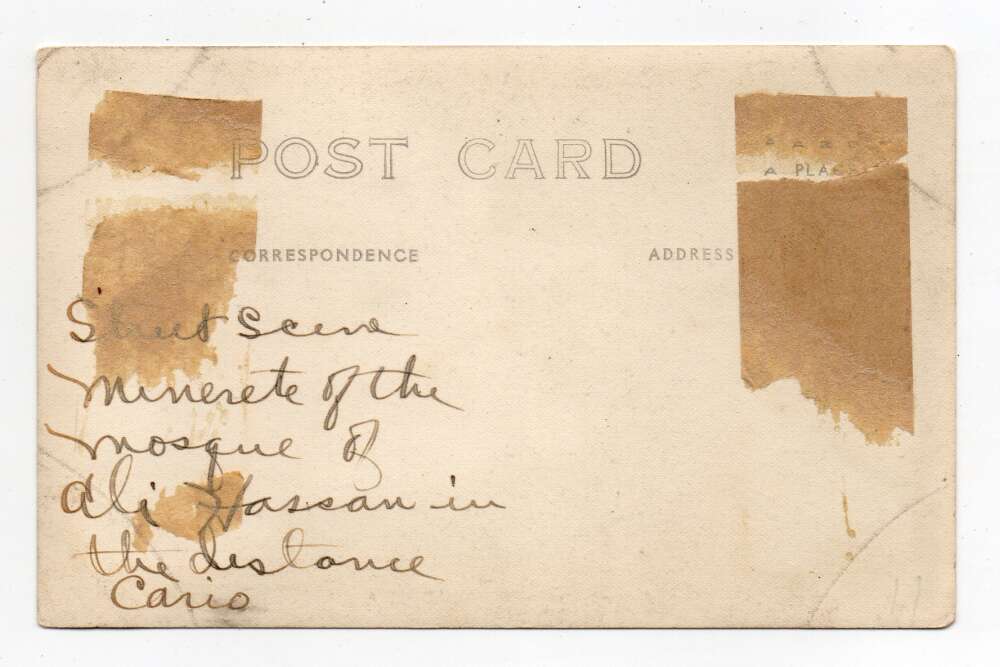 POST CARD
A PLA
CORRESPONDENCE ADDRESS
Street Scene
Minerete of the
Mosque of
Ali Hassan in
the distance
Cario